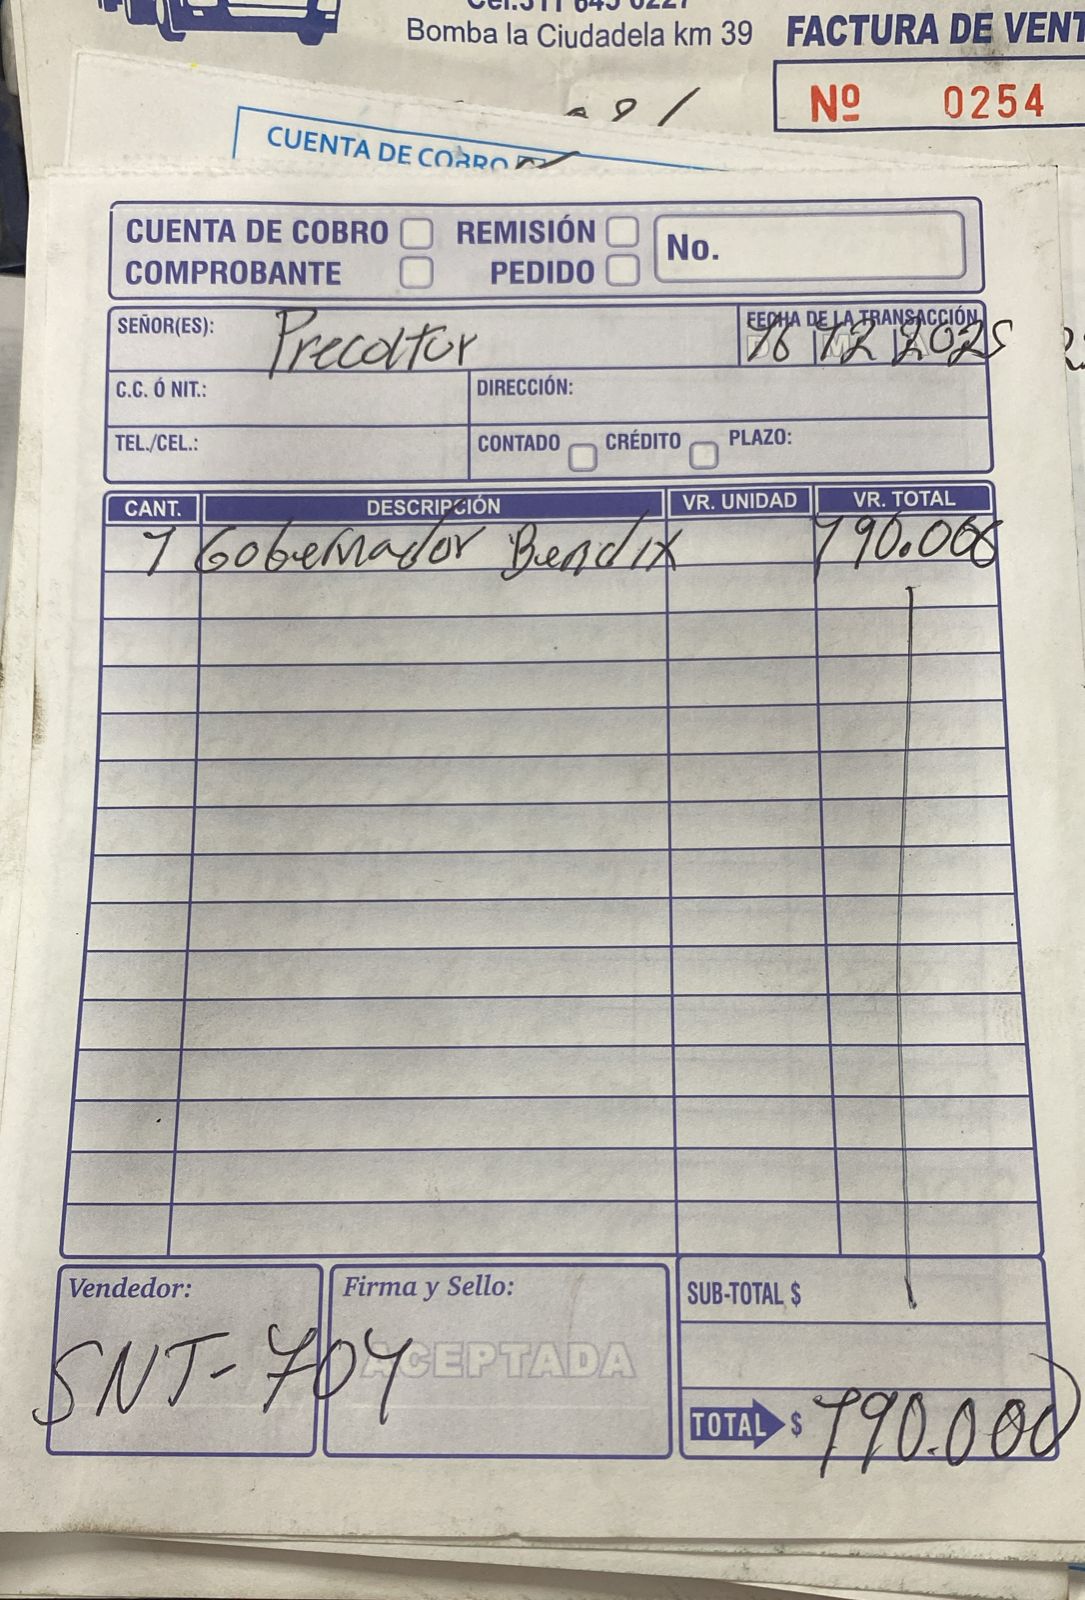 Bomba la Ciudadela km 39
FACTURA DE VENT
Nº 0254
CUENTA DE COBRO
CUENTA DE COBRO REMISIÓN No.
COMPROBANTE PEDIDO
SEÑOR(ES): Precoltur
FECHA DE LA TRANSACCIÓN
16 12 2025
C.C. Ó NIT.: DIRECCIÓN:
TEL./CEL.: CONTADO CRÉDITO PLAZO:
CANT. DESCRIPCIÓN VR. UNIDAD VR. TOTAL
1 Gobernador Bendix 190.000
Vendedor: Firma y Sello: SUB-TOTAL $
SNT-704
ACEPTADA
TOTAL $ 190.000